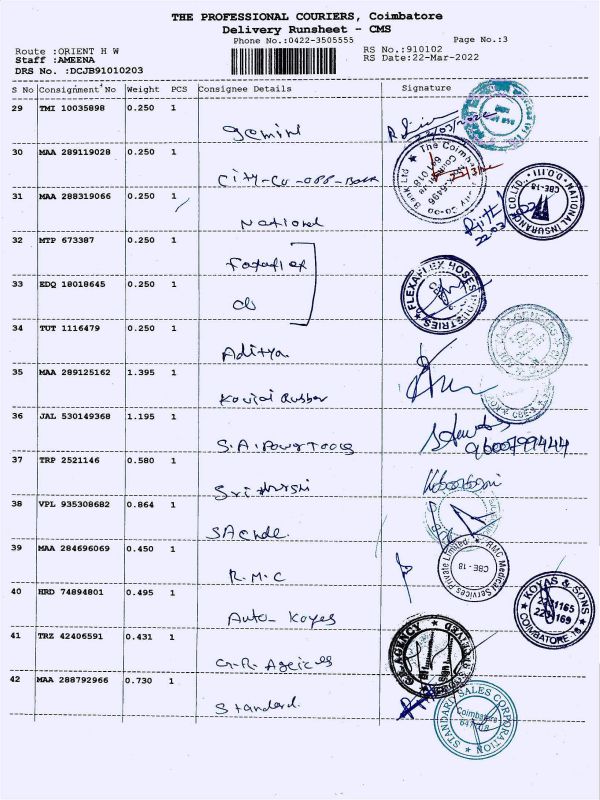 THE PROFESSIONAL COURIERS, Coimbatore
Delivery Runsheet - CMS
Phone No.:0422-3505555 Page No.:3
Route :ORIENT H W RS No.:910102
Staff :AMEENA RS Date:22-Mar-2022
DRS No. :DCJB91010203
S No Consignment No Weight PCS Consignee Details Signature
29 TMI 10035898 0.250 1
Gemini
30 MAA 289119028 0.250 1
City-Co-opp-Bank
31 MAA 288319066 0.250 1
National
32 MTP 673387 0.250 1
33 EDQ 18018645 0.250 1
do
34 TUT 1116479 0.250 1
Aditya
35 MAA 289125162 1.395 1
Rubber
36 JAL 530149368 1.195 1
S.A.PowerTools
9600799444
37 TRP 2521146 0.580 1
38 VPL 935308682 0.864 1
39 MAA 284696069 0.450 1
R.M.C
40 HRD 74894801 0.495 1
Auto- Koyas
41 TRZ 42406591 0.431 1
G.R. Agencies
42 MAA 288792966 0.730 1
Standard
NATIONAL INSURANCE CO.LTD.
CBE-18
FLEXAFLEX HOSES INDUSTRIES
RMC Medical Services Private Limited
CBE - 18
KOYAS & SONS
COIMBATORE
AGENCY
STANDARD SALES CORPORATION
Coimbatore